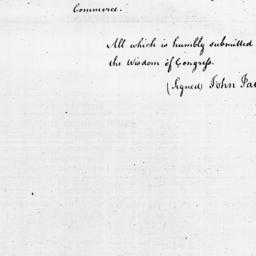 Commerce.
All which is humbly submitted
the Wisdom of Congress.
(Signed) John